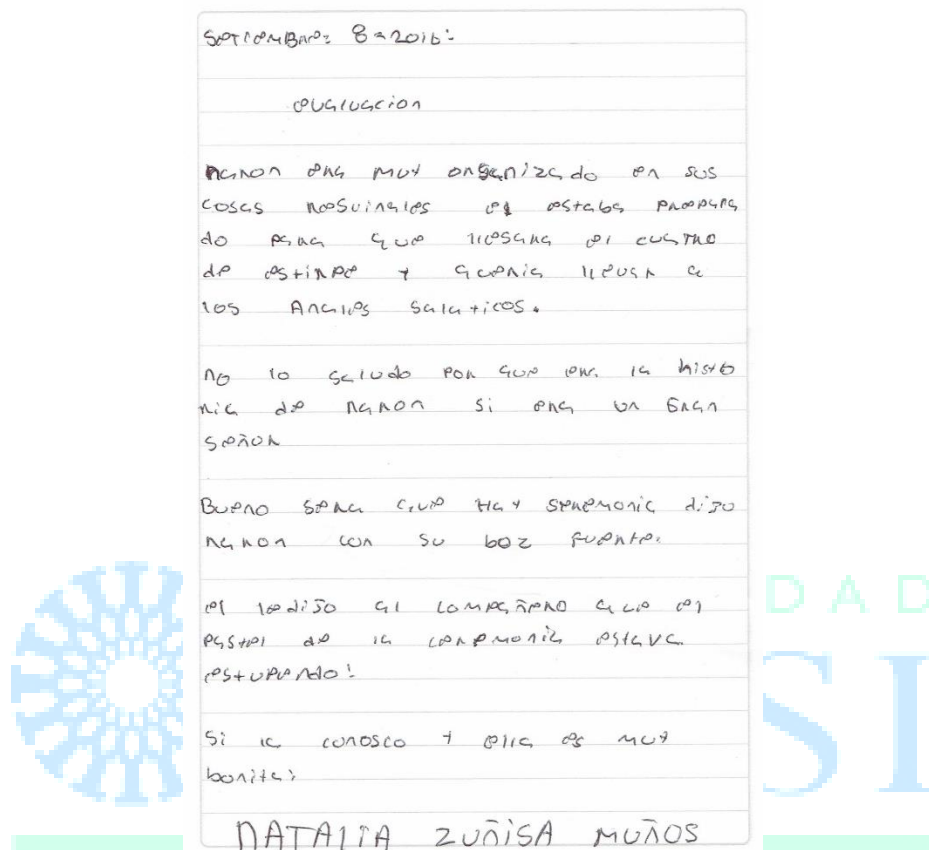 SePTIeMBRe: 8-2016:
evaluacion
Ramon era muy organizado en sus
cosas
el estaba prepara
do para que llegara el cuatro
de y queria llevar a
los Anales Galacticos.
no lo saludo por que en la histo
ria de ramon si era un Gran
señor
Bueno sera que Hay seremonia dijo
ramon con su boz fuente.
el ledijo al compañero que el
pastel de la ceremonia estava
estupendo!
Si la conosco y ella es muy
bonita:
NATALIA ZUÑIGA MUÑOS
DAD
SI